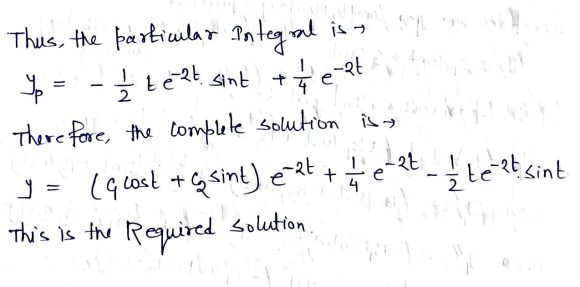 Thus, the particular Integral is →
y_p = - 1/2 t e^{-2t} sint + 1/4 e^{-2t}
Therefore, the complete solution is →
y = (c₁ cost + c₂ sint) e^{-2t} + 1/4 e^{-2t} - 1/2 t e^{-2t} sint
This is the Required solution.